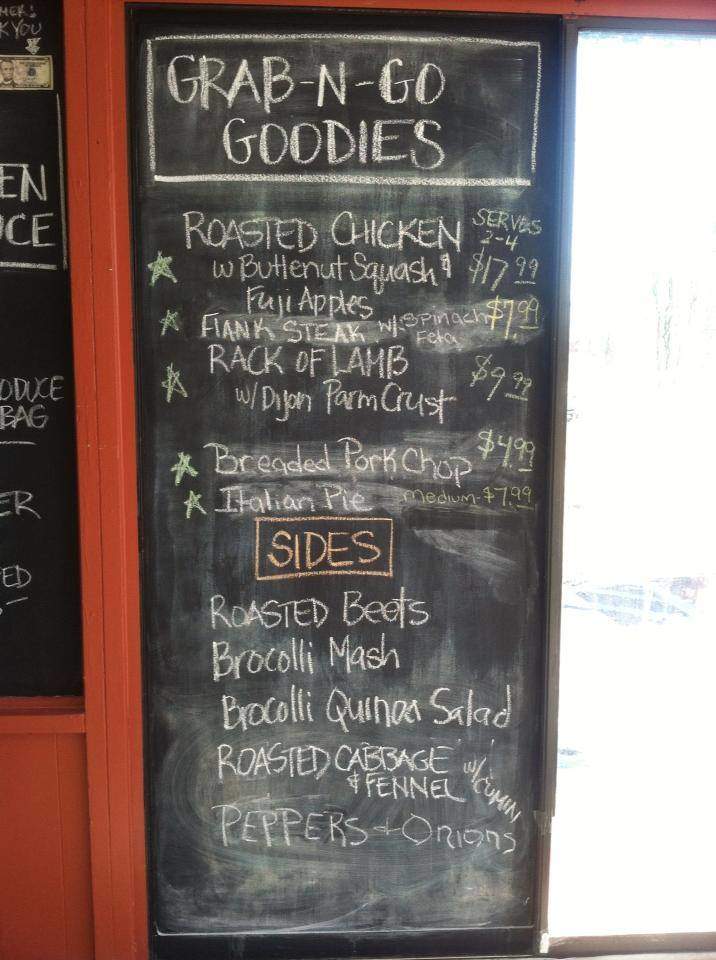 MER!
K YOU
EN
CE
ODUCE
BAG
ER
ED
GRAB-N-GO
GOODIES
ROASTED CHICKEN SERVES
2-4
w Butternut Squash & $17.99
Fuji Apples
FLANK STEAK w/ Spinach $7.99
Feta
RACK OF LAMB $9.99
w/ Dijon Parm Crust
Breaded Pork Chop $4.99
Italian Pie medium-$7.99
SIDES
ROASTED Beets
Brocolli Mash
Brocolli Quinoa Salad
ROASTED CABBAGE w/ CUMIN
& FENNEL
PEPPERS + Onions